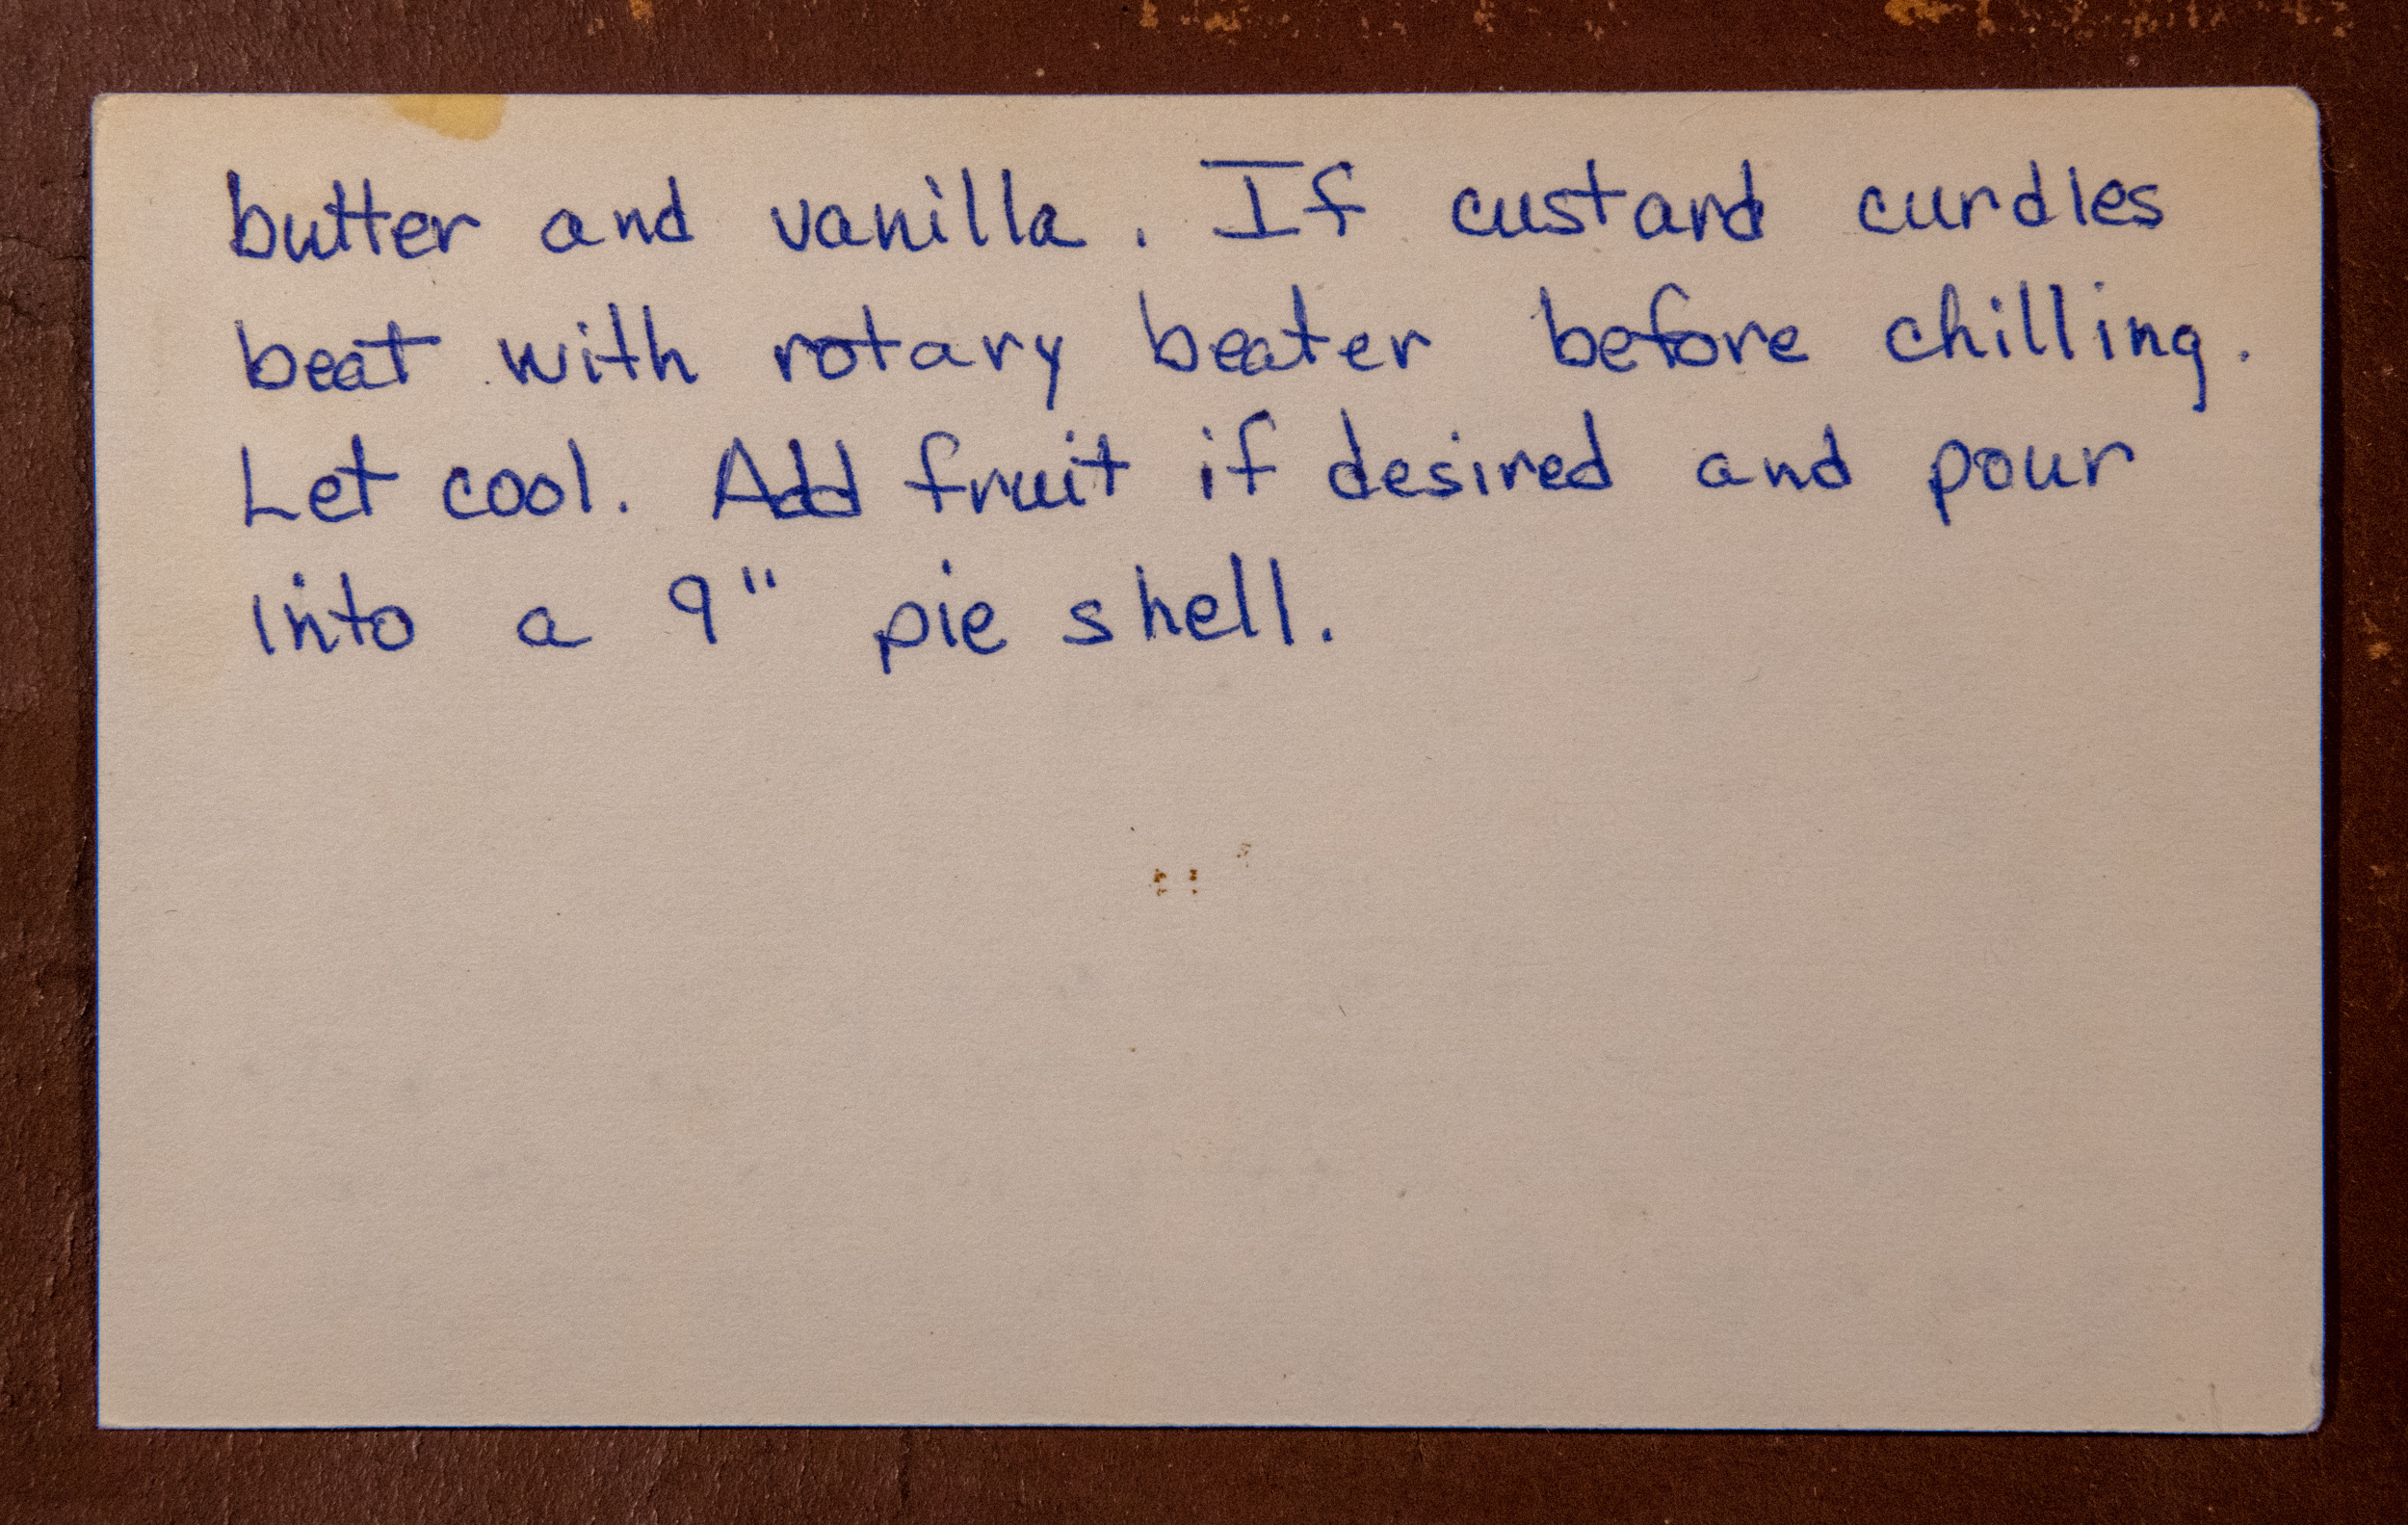 butter and vanilla. If custard curdles
beat with rotary beater before chilling.
Let cool. Add fruit if desired and pour
into a 9" pie shell.